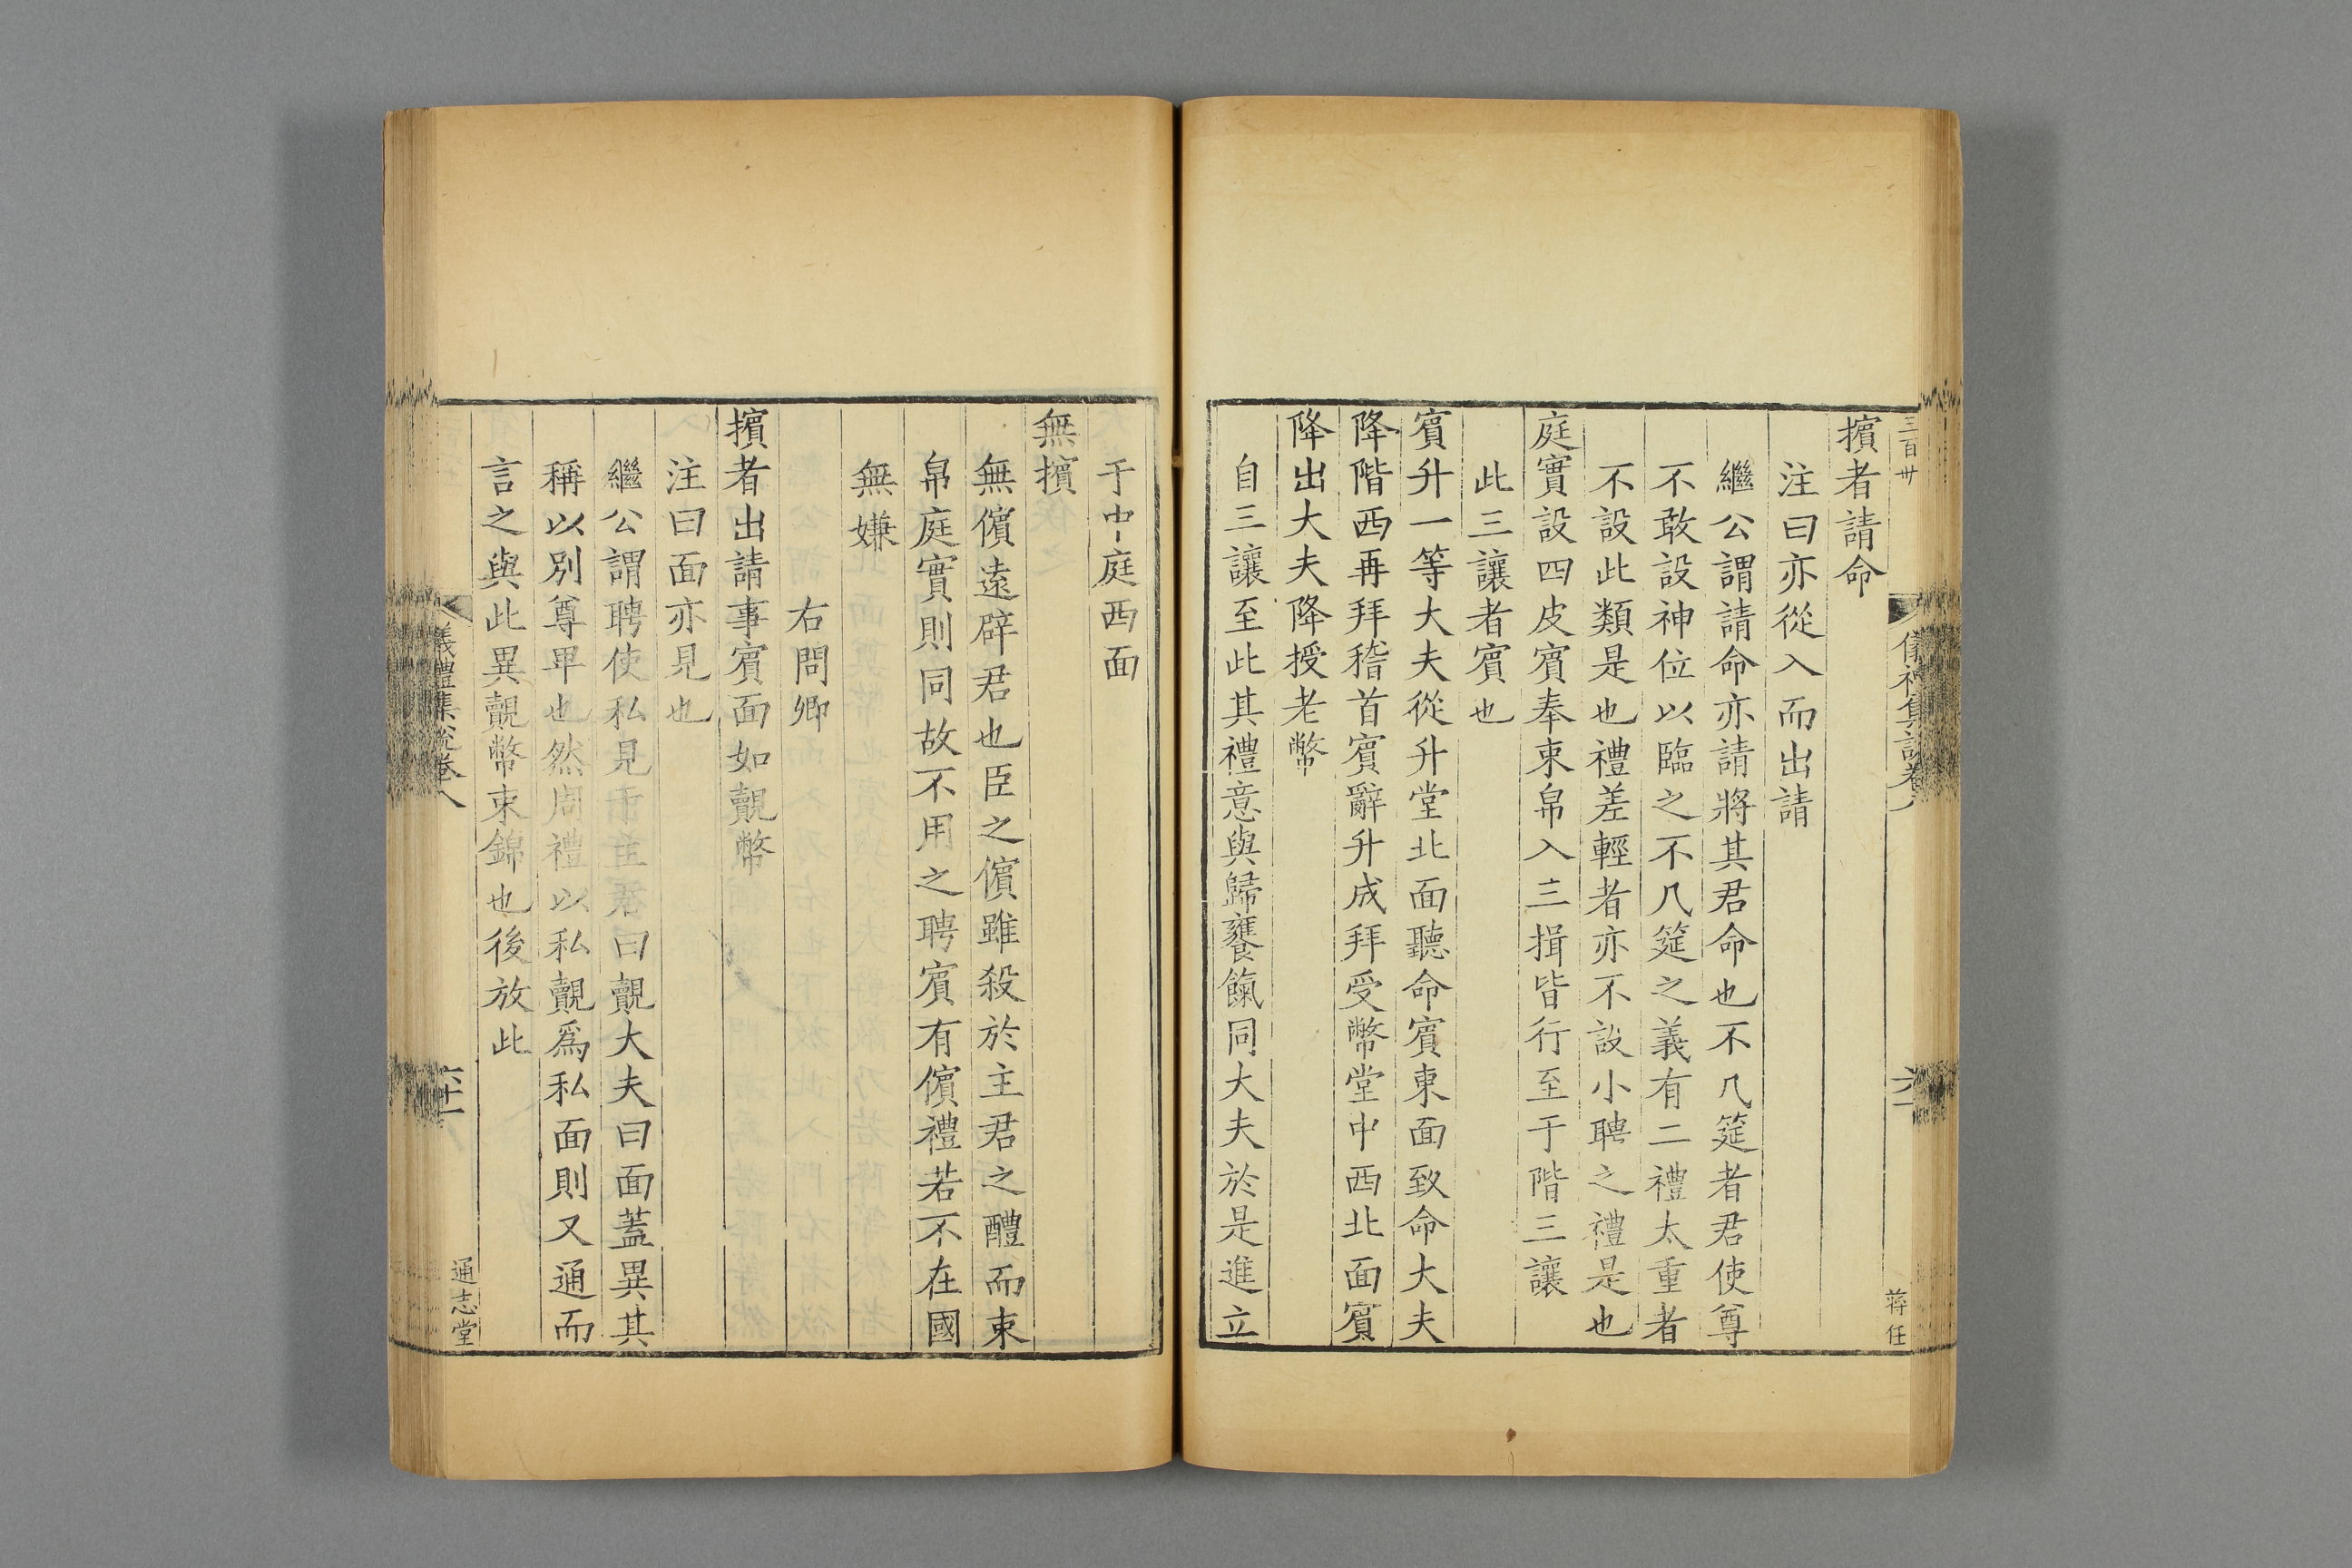 三百卅
擯者請命
注曰亦從入而出請
繼公謂請命亦請將其君命也不几筵者君使尊
不敢設神位以臨之不几筵之義有二禮太重者
不設此類是也禮差輕者亦不設小聘之禮是也
庭實設四皮賓奉束帛入三揖皆行至于階三讓
此三讓者賓也
賓升一等大夫從升堂北面聽命賓東面致命大夫
降階西再拜稽首賓辭升成拜受幣堂中西北面賓
降出大夫降授老幣
自三讓至此其禮意與歸饔餼同大夫於是進立
蒋任
于中庭西面
無擯
無儐遠辟君也臣之儐雖殺於主君之醴而束
帛庭實則同故不用之聘賓有儐禮若不在國
無嫌
右問卿
擯者出請事賓面如覿幣
注曰面亦見也
繼公謂聘使私見于主君曰覿大夫曰面蓋異其
稱以別尊卑也然周禮以私覿爲私面則又通而
言之與此異覿幣束錦也後放此
儀禮集說卷八
通志堂